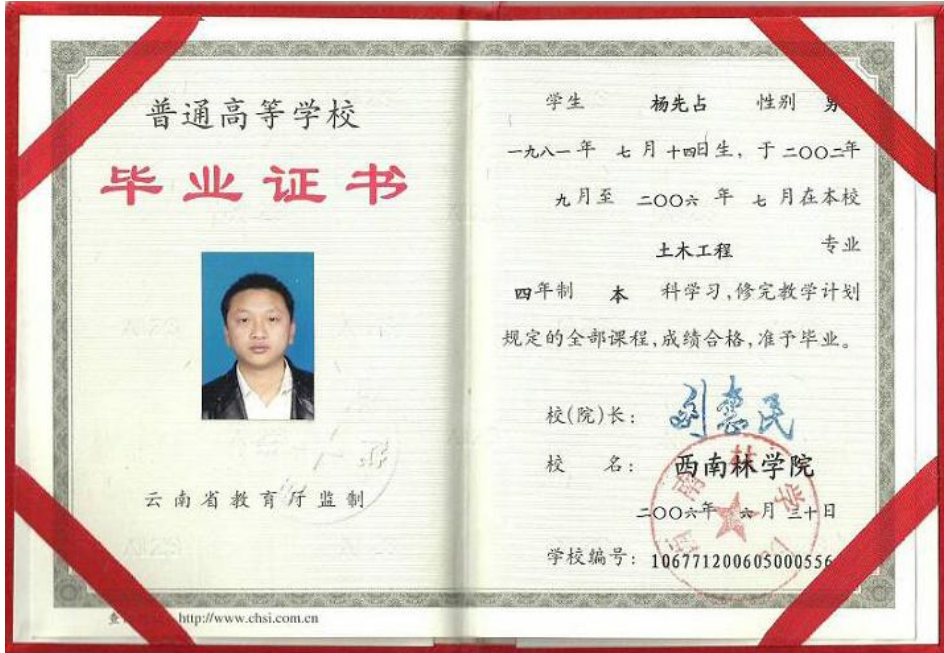 普通高等学校
毕业证书
云南省教育厅监制
http://www.chsi.com.cn
学生 杨先占 性别 男
一九八一年 七月十四日生，于二〇〇二年
九月至 二〇〇六年 七月在本校
土木工程 专业
四年制 本 科学习，修完教学计划
规定的全部课程，成绩合格，准予毕业。
校(院)长：
校 名： 西南林学院
二〇〇六年 六月三十日
学校编号：106771200605000556